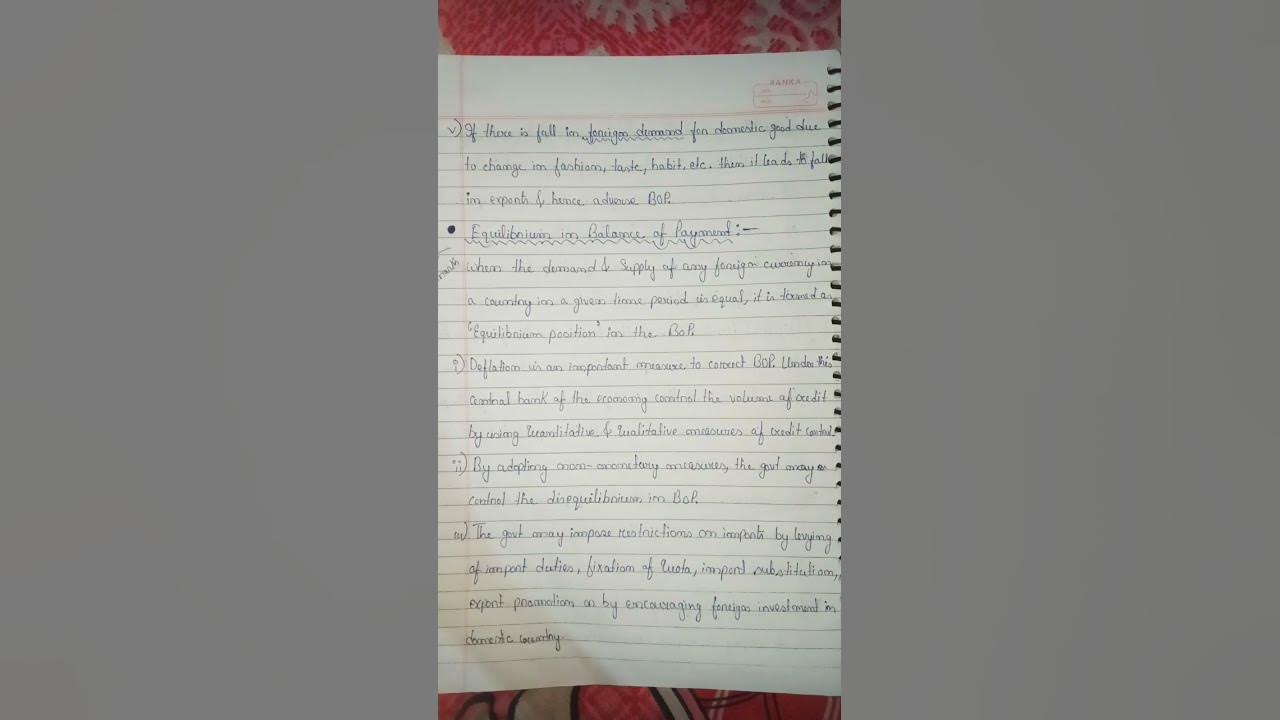 RANKA
v) If there is fall in foreign demand for domestic good due
to change in fashion, taste, habit, etc. then it leads to fall
in exports & hence adverse BOP.
• Equilibrium in Balance of Payment :-
when the demand & Supply of any foreign currency in
a country in a given time period is equal, it is termed as
"Equilibrium position" in the BOP.
i) Deflation is an important measure to correct BOP. Under this
central bank of the economy control the volume of credit
by using Quantitative & Qualitative measures of credit control.
ii) By adopting non-monetary measures, the govt may
control the disequilibrium in BOP.
iii) The govt may impose restrictions on imports by levying
of import duties, fixation of Quota, import substitution,
export promotion or by encouraging foreign investment in
domestic country.